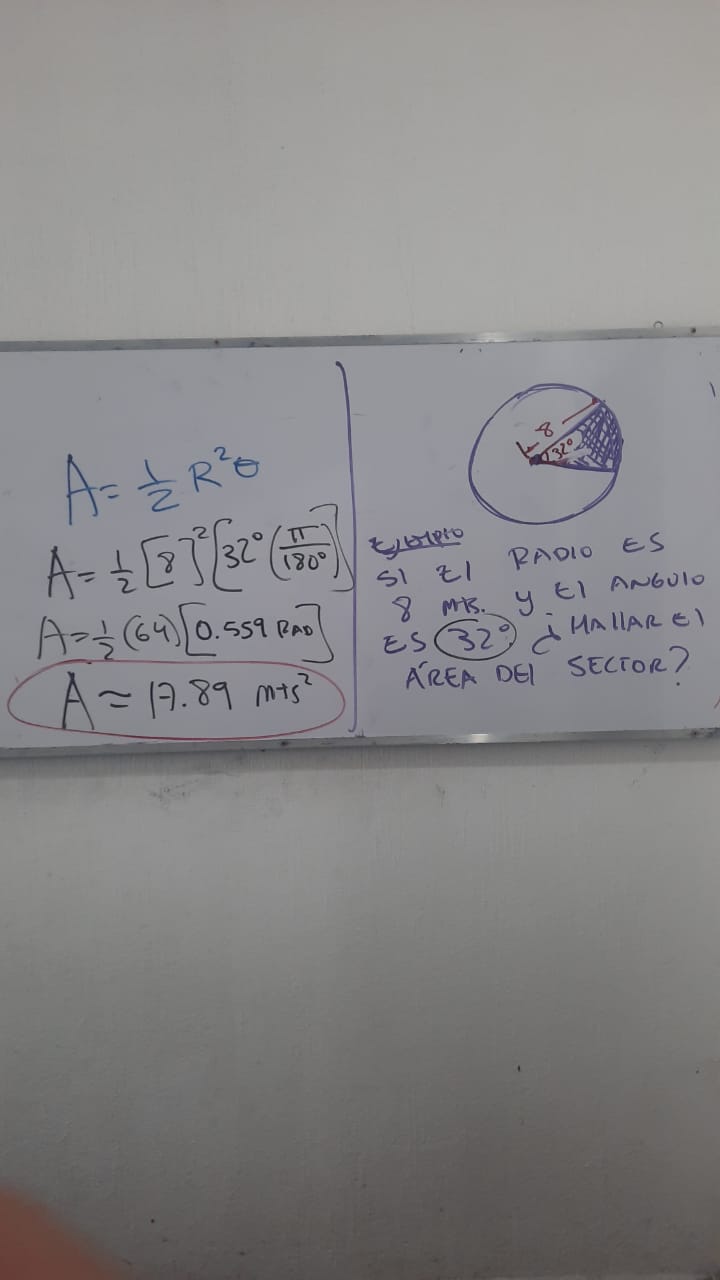 A = 1/2 R²θ
A = 1/2 [8]² [32° (π/180°)]
A = 1/2 (64) [0.559 RAD]
A ≈ 17.89 mts²
8
32°
EJEMPlO
SI El RADIO ES
8 Mts. y El ANGUlO
ES 32° ¿ HAllAR El
ÁREA DEl SECTOR?